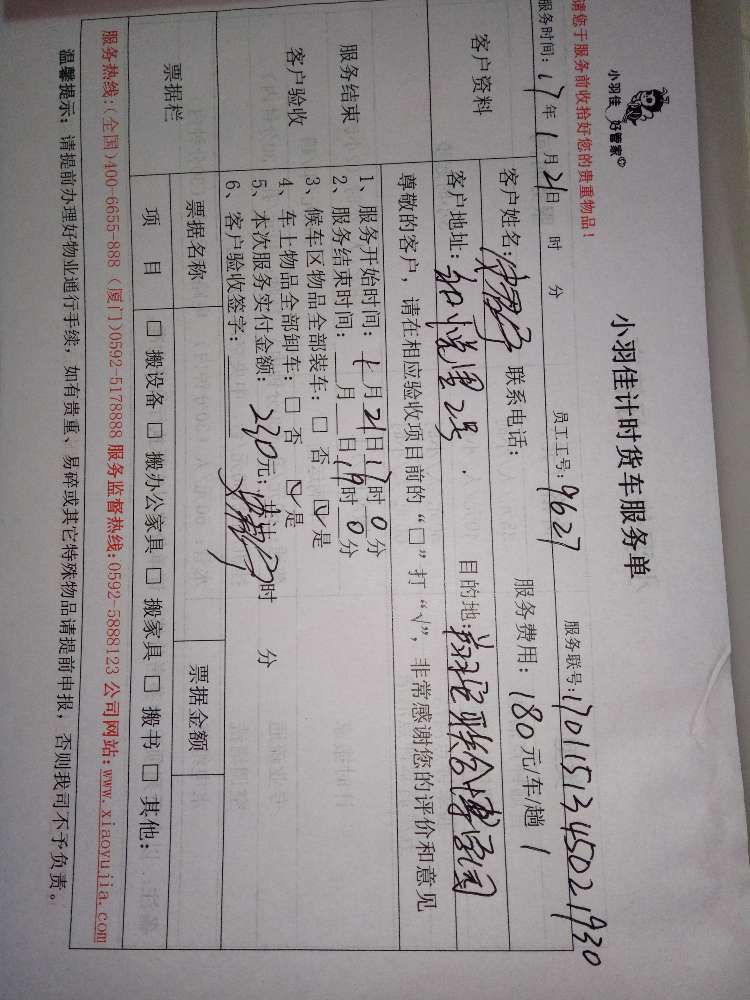 小羽佳 好管家©
小羽佳计时货车服务单
请您于服务前收拾好您的贵重物品！
服务时间：17年1月21日 时 分 员工工号：9627 服务联号：17011513450021930
客户资料
客户姓名： 联系电话： 服务费用：180元/车/趟 1
客户地址：和悦里2号. 目的地：翔安联合博学园
尊敬的客户，请在相应验收项目前的“□”打“√”，非常感谢您的评价和意见
服务结束
客户验收
1、服务开始时间：1月21日17时0分
2、服务结束时间：__月__日19时0分
3、候车区物品全部装车：□ 否 ☑是
4、车上物品全部卸车：□ 否 ☑是
5、本次服务实付金额：230元；共计 时 分
6、客户验收签字：
票据栏 票据名称 票据金额
项 目 □ 搬设备 □ 搬办公家具 □ 搬家具 □ 搬书 □ 其他：
服务热线：(全国)400-6655-888 (厦门)0592-5178888 服务监督热线：0592-5888123 公司网站：www.xiaoyujia.com
温馨提示：请提前办理好物业通行手续，如有贵重、易碎或其它特殊物品请提前申报，否则我司不予负责。